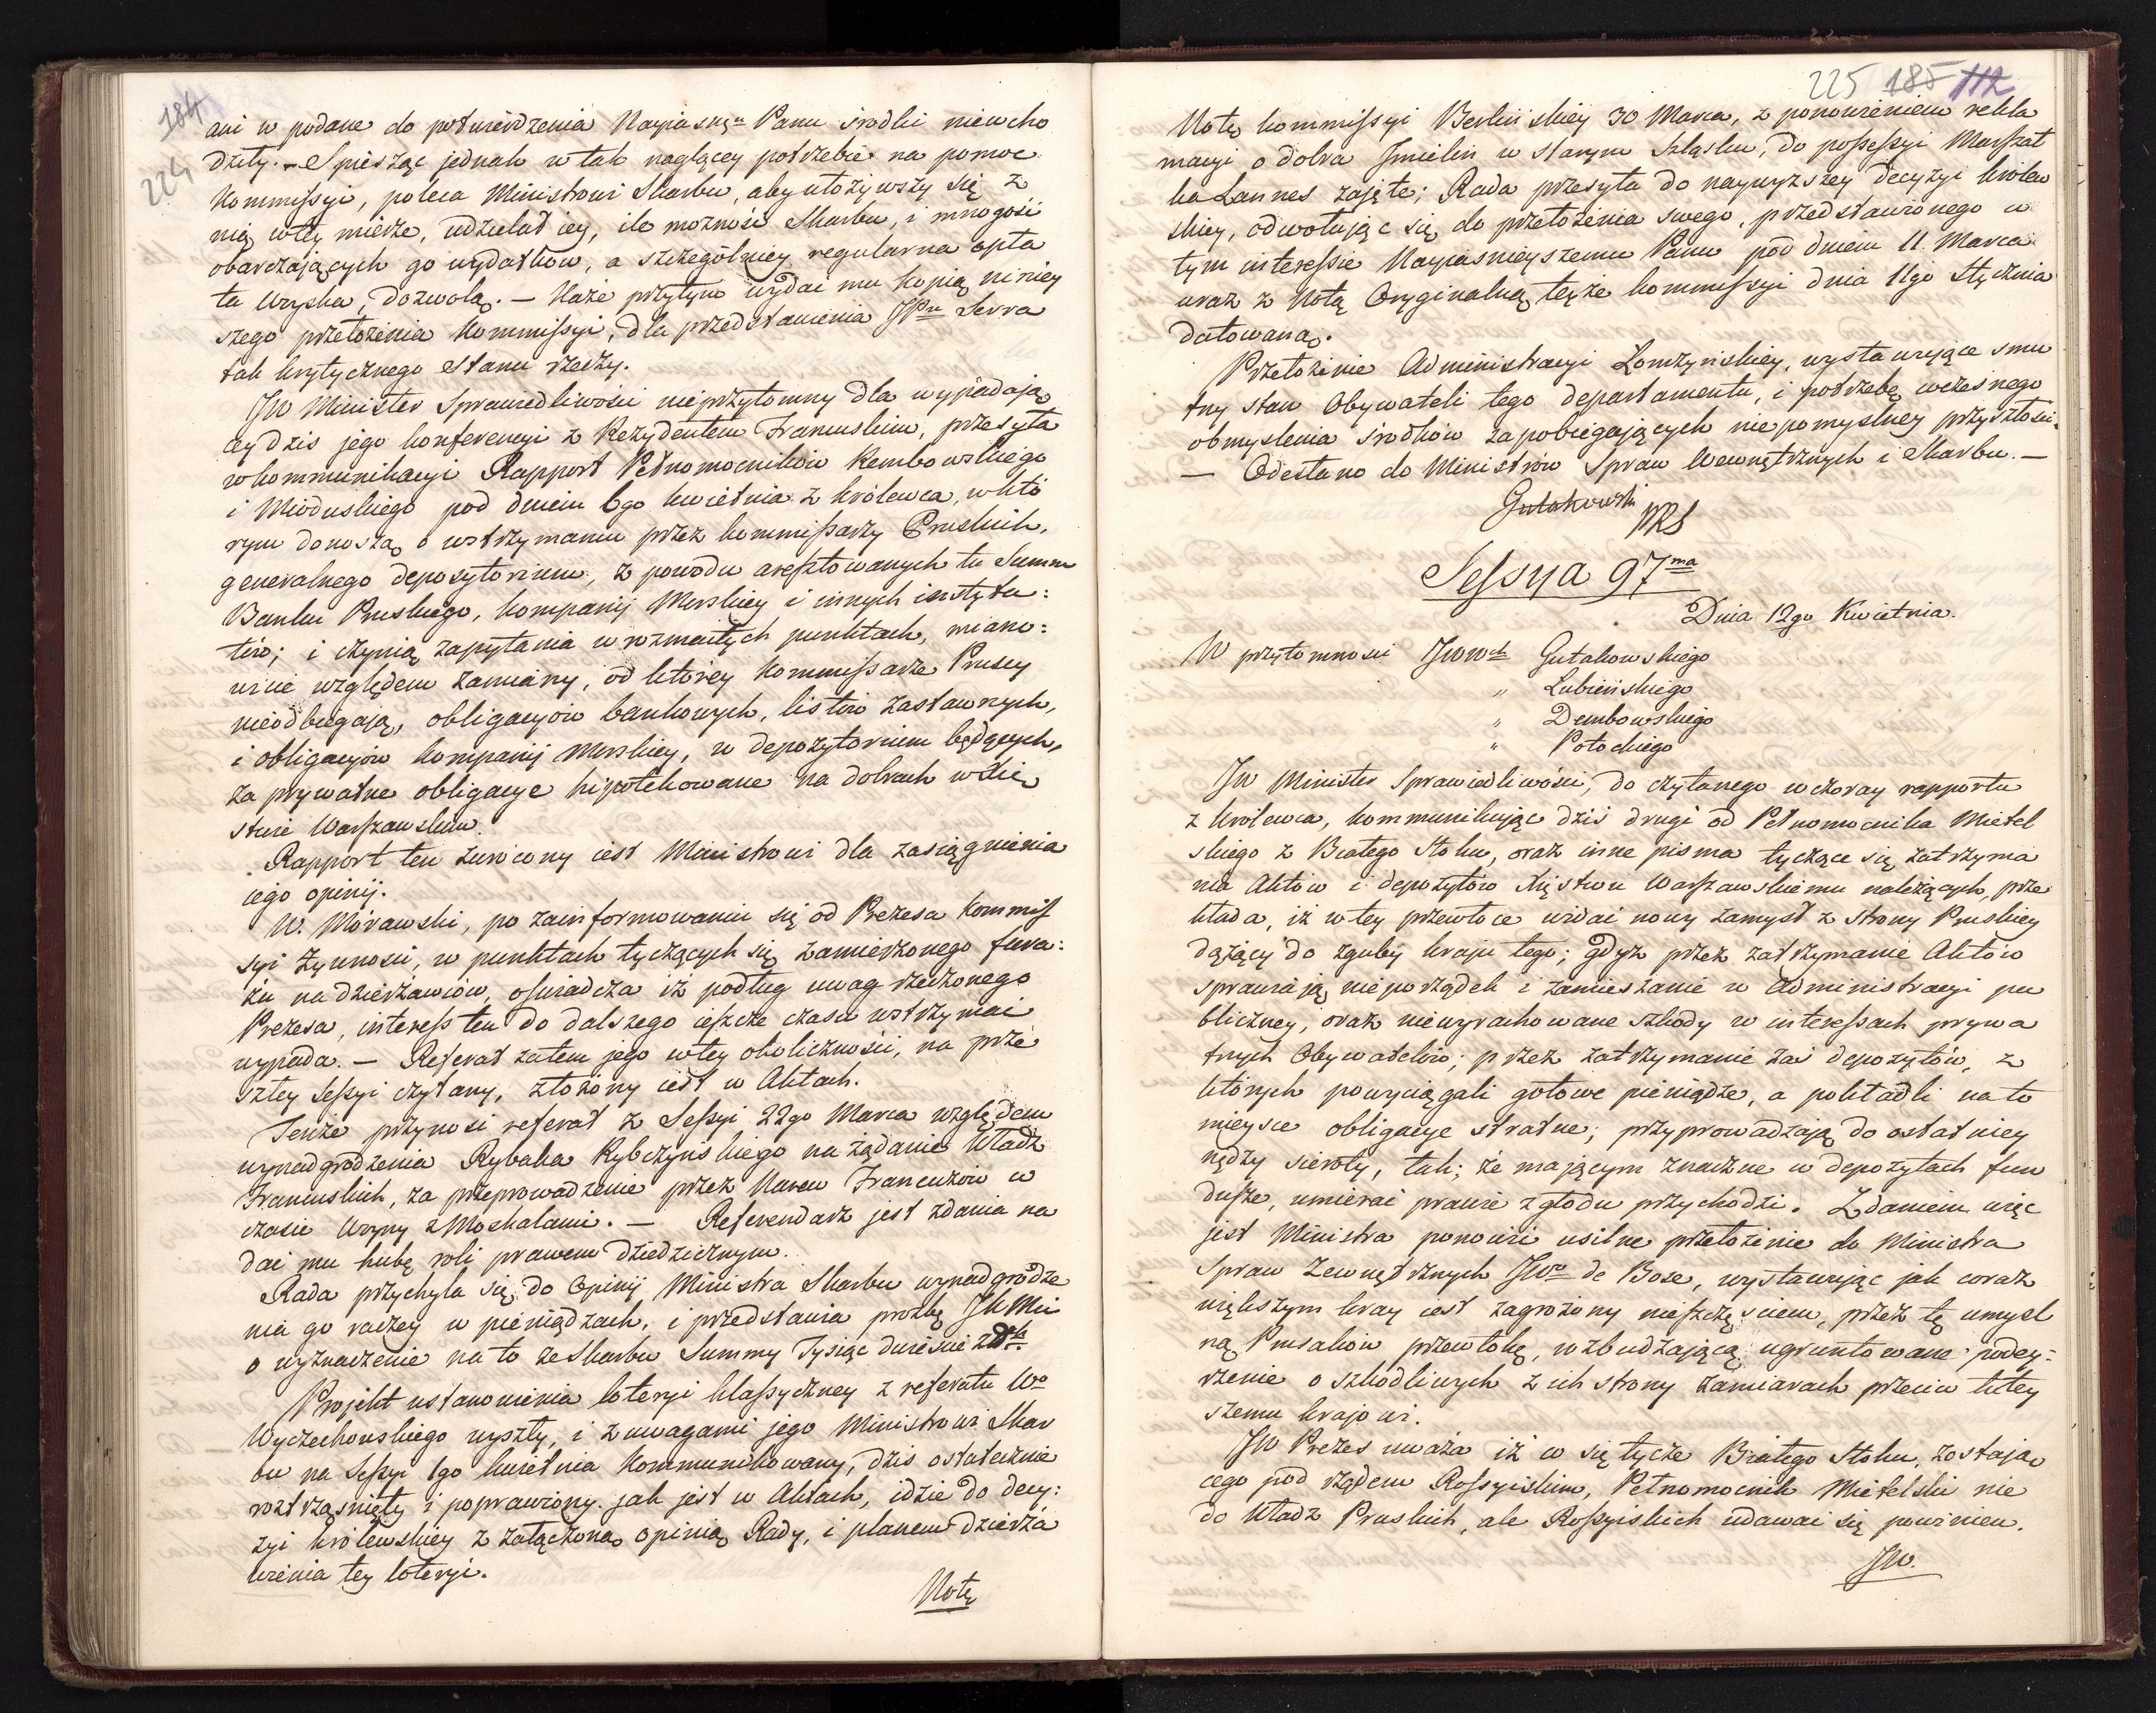 184
224
ani w podane do potwierdzenia Nayiasnⁿ Panu środki niewcho
dziły. – Spiesząc jednak w tak naglącey potrzebie na pomoc
Kommissyi, poleca Ministrowi Skarbu, aby ułożywszy się z
nią wtey mierze, udzielał iey, ile możność Skarbu, i mnogość
obarczających go wydatków, a szczególniey regularna opła
ta Woyska, dozwolą. – Każe przytym wydać mu kopią niniey
szego przełożenia Kommissyi, dla przedstawienia JPu Serra
tak krytycznego stanu rzeczy.
JW Minister Sprawiedliwości nieprzytomny dla wypadają
cey dziś jego konferencyi z Rezydentem Francuskim, przesyła
w kommunikacyi Rapport Pełnomocników Rembowskiego
i Mioduskiego pod dniem 6go kwietnia z królewca, w któ
rym donoszą o wstrzymaniu przez kommissarzy Pruskich,
generalnego depozytorium, z powodu aresztowanych tu Summ
Banku Pruskiego, kompanij Morskiey i innych instytu:
tów; i czynią zapytania w rozmaitych punktach, miano:
wicie względem zamiany, od którey Kommissarze Pruscy
nieodbiegają, obligacyów bankowych, listów zastawnych,
i obligacyów kompanij Morskiey, w depozytorium będących,
za prywatne obligacye hipotekowane na dobrach w Xię
stwie Warszawskim.
Rapport ten zwrócony iest Ministrowi dla zasiągnienia
iego opinij.
W. Morawski, po zainformowaniu się od Prezesa Kommis
syi Żywności, w punktach tyczących się zamierzonego fura:
żu na dzierżawców, oświadcza iż podług uwag rzeczonego
Prezesa, interess ten do dalszego ieszcze czasu wstrzymać
wypada. – Referat zatem jego wtey okoliczności, na prze
szłey Sessyi czytany, złożony iest w Aktach.
Tenże przynosi referat z Sessyi 22go Marca względem
wynadgrodzenia Rybaka Rybczyńskiego na żądanie Władz
Francuskich, za przeprowadzenie przez Narew Francuzów w
czasie Woyny z Moskalami. – Referendarz jest zdania na
dać mu hubę roli prawem dziedzicznym.
Rada przychyla się do Opinij Ministra Skarbu wynadgrodze
nia go raczey w pieniądzach, i przedstawia prozbę JkMci
o wyznaczenie na to ze Skarbu Summy Tysiąc dwieście złł.
Projekt ustanowienia loteryi klassyczney z referatu Wo
Wyczechowskiego wyszły, i z uwagami jego Ministrowi Skar
bu na Sessyi 1go kwietnia kommunikowany, dziś ostatecznie
roztrząsnięty i poprawiony jak jest w Aktach, idzie do decy:
zyi królewskiey z załączoną opinią Rady, i planem dzierża
wienia tey loteryi.
Notę
225 185 112
Notę kommissyi Berlińskiey 30 Marca, z ponowieniem rekla
macyi o dobra Imielin w starym Szląsku, do possessyi Marszał
ka Lannes zajęte; Rada przesyła do naywyższey decyzyi królew
skiey, odwołując się do przełożenia swego, przedstawionego w
tym interessie Nayiaśnieyszemu Panu pod dniem 11. Marca
wraz z Notą Oryginalną teyże kommissyi dnia 11go Stycznia
datowaną.
Przełożenie Administracyi Łomżyńskiey, wystawujące smu
tny stan Obywateli tego departamentu, i potrzebę wczesnego
obmyślenia środków zapobiegających niepomyślney przyszłości.
– Odesłano do Ministrów Spraw Wewnętrznych i Skarbu. –
Gutakowski PRS
Sessya 97ma
Dnia 12go Kwietnia.
W przytomności JWWch Gutakowskiego
" Łubieńskiego
" Dembowskiego
" Potockiego
JW Minister Sprawiedliwości, do czytanego wczoray rapportu
z królewca, kommunikując dziś drugi od Pełnomocnika Mietel
skiego z Białego Stoku, oraz inne pisma tyczące się zatrzyma
nia Aktów i depozytów Xięstwu Warszawskiemu należących, prze
kłada, iż wtey przewłoce widać nowy zamysł z strony Pruskiey
dążący do zguby kraju tego; gdyż przez zatrzymanie Aktów
sprawują nieporządek i zamieszanie w Administracyi pu
bliczney, oraz niewyrachowane szkody w interessach prywa
tnych Obywatelów; przez zatrzymanie zaś depozytów, z
których powyciągali gotowe pieniądze, a pokładli na to
mieysce obligacye stratne; przyprowadzają do ostatniey
nędzy sieroty, tak; że mającym znaczne w depozytach fun
dusze, umierać prawie z głodu przychodzi. Zdaniem więc
jest Ministra ponowić usilne przełożenie do Ministra
Spraw Zewnętrznych JWo de Bose, wystawując jak coraz
większym kray iest zagrożony nieszczęściem, przez tę umysl
ną Prusaków przewłokę, wzbudzającą ugruntowane podey:
rzenie o szkodliwych z ich strony zamiarach przeciw tutey
szemu krajowi.
JW Prezes uważa iż co się tycze Białego Stoku, zostają
cego pod rządem Rossyiskim, Pełnomocnik Mietelski nie
do Władz Pruskich, ale Rossyiskich udawać się powinien.
JW.